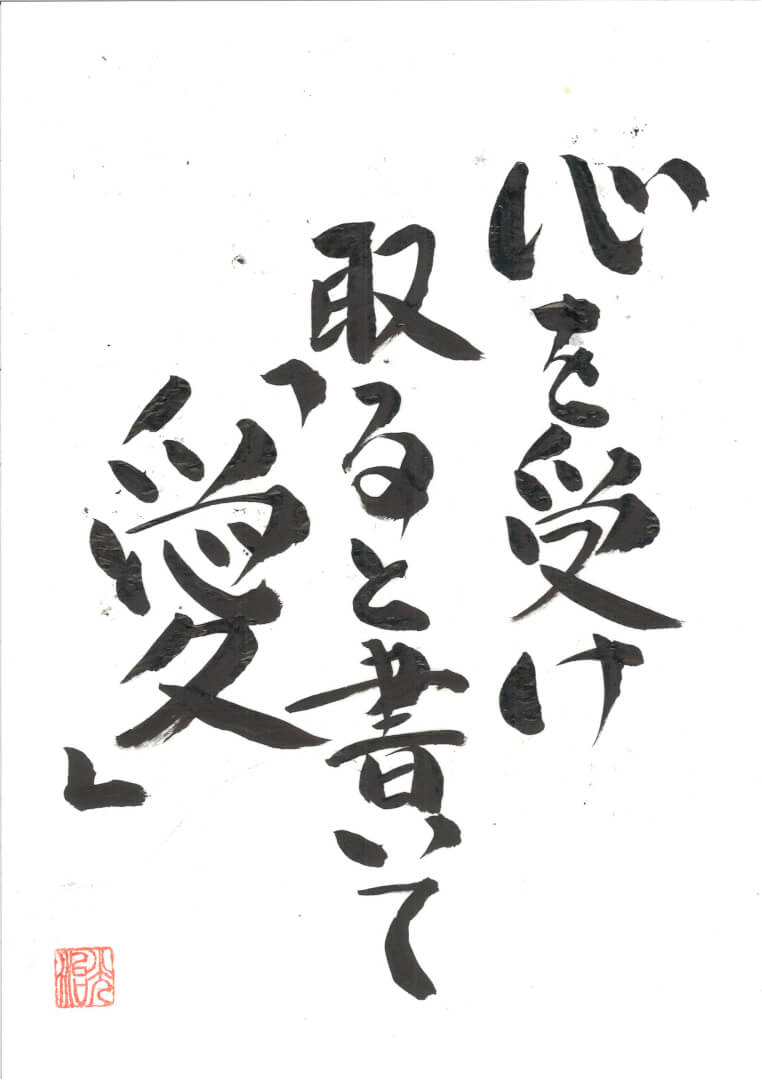 心を受け
取ると書いて
「愛」